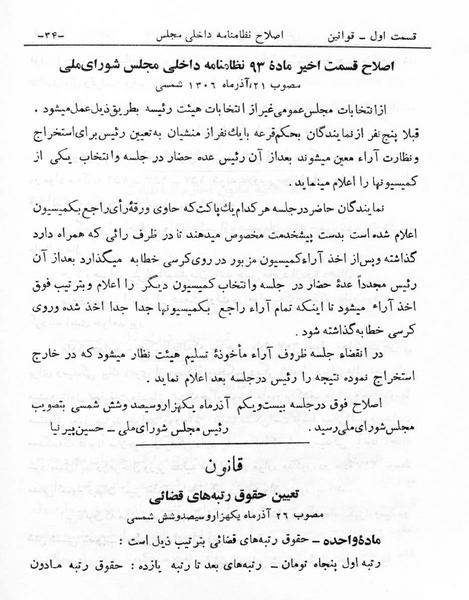 قسمت اول ـ قوانین اصلاح نظامنامه داخلی مجلس -۳۴-
اصلاح قسمت اخیر ماده ۹۳ نظامنامه داخلی مجلس شورای ملی
مصوب ۲۱ آذر ماه ۱۳۰۶ شمسی
از انتخابات مجلس عمومی غیر از انتخابات هیئت رئیسه بطریق ذیل عمل میشود .
قبلا پنج نفر از نمایندگان بحکم قرعه با یك نفر از منشیان به تعیین رئیس برای استخراج
و نظارت آراء معین میشوند بعد از آن رئیس عده حضار در جلسه و انتخاب یکی از
کمیسیونها را اعلام مینماید .
نمایندگان حاضر در جلسه هر کدام یك پاکت که حاوی ورقهٔ رأی راجع بکمیسیون
اعلام شده است بدست پیشخدمت مخصوص میدهند تا در ظرف رائی که همراه دارد
گذاشته و پس از اخذ آراء کمیسیون مزبور در روی کرسی خطابه میگذارد بعد از آن
رئیس مجدداً عدهٔ حضار در جلسه و انتخاب کمیسیون دیگر را اعلام و بترتیب فوق
اخذ آراء میشود تا اینکه تمام آراء راجع بکمیسیونها جدا جدا اخذ شده و روی
کرسی خطابه گذاشته شود .
در انقضاء جلسه ظروف آراء مأخوذهٔ تسلیم هیئت نظار میشود که در خارج
استخراج نموده نتیجه را رئیس در جلسه بعد اعلام نماید .
اصلاح فوق در جلسه بیست و یکم آذر ماه یکهزار و سیصد و شش شمسی بتصویب
مجلس شورای ملی رسید . رئیس مجلس شورای ملی ـ حسین پیر نیا
قانون
تعیین حقوق رتبه های قضائی
مصوب ۲۶ آذر ماه یکهزار و سیصد و شش شمسی
مادهٔ واحده ـ حقوق رتبه های قضائی بترتیب ذیل است :
رتبه اول پنجاه تومان ـ رتبه های بعد تا رتبه یازده : حقوق رتبه مادون